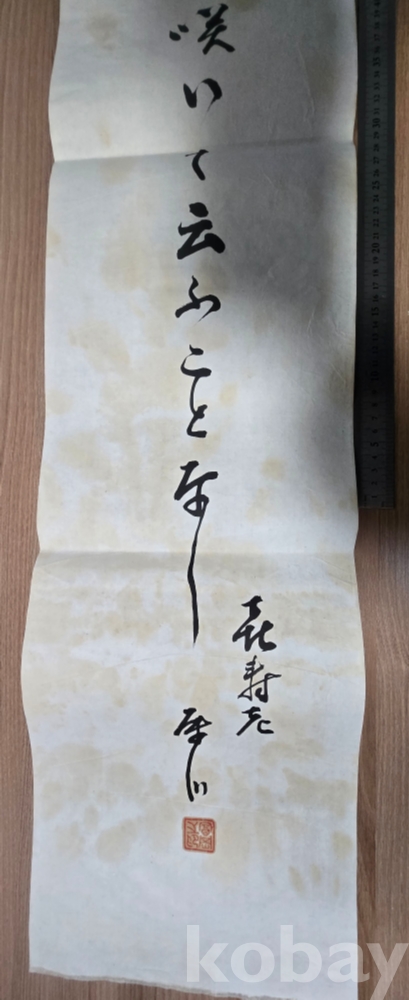 咲いて云ふことなし
喜寿老
kobay